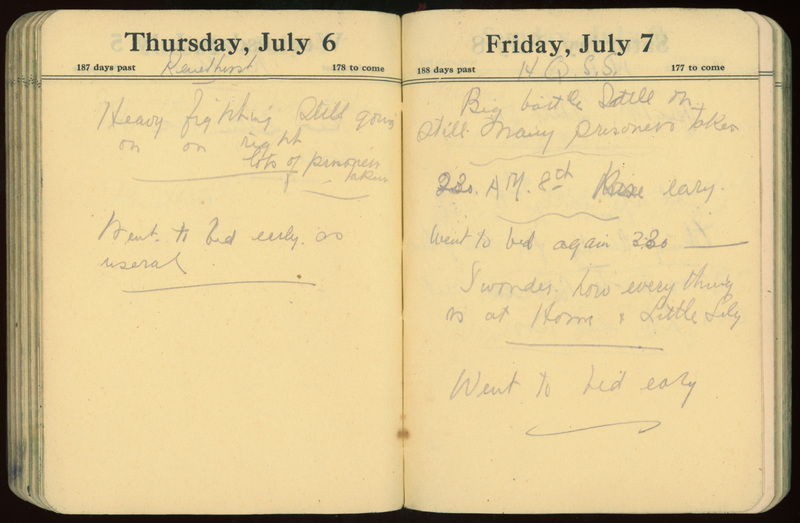 Thursday, July 6
187 days past
178 to come
Heavy fighting still going
on on right
lots of prisoners
taken
Went to bed early as
useral
Friday, July 7
188 days past H Q. S. S. 177 to come
Big battle still on
still many prisoners taken
230. A M. 8th Rose eazy.
Went to bed again 230
I wonder how every thing
is at Home & Little Lily
Went to bed eazy